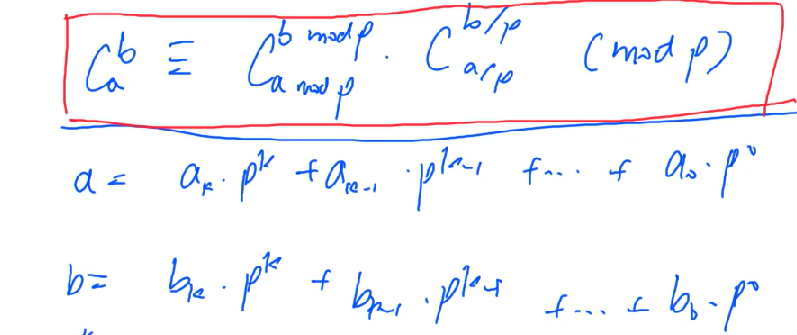 C_a^b ≡ C_{a mod p}^{b mod p} · C_{a/p}^{b/p} (mod p)
a = a_k · p^k + a_{k-1} · p^{k-1} + ... + a_0 · p^0
b = b_k · p^k + b_{k-1} · p^{k-1} + ... + b_0 · p^0